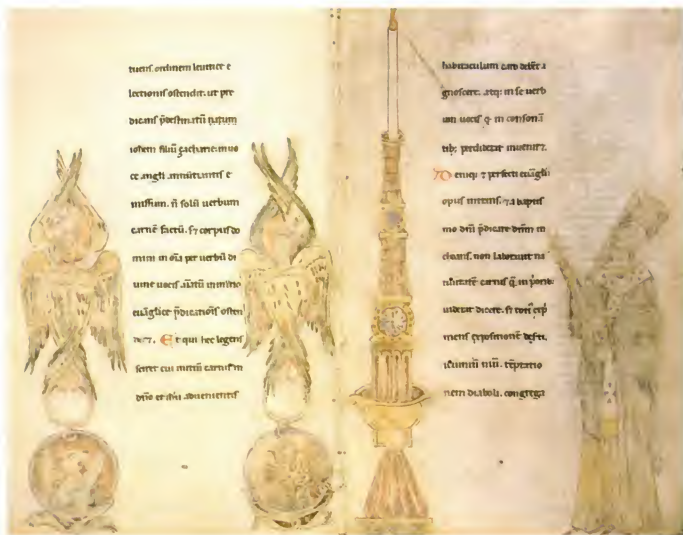 tuens. ordinem leuitice e
lectionis ostendit. ut pre
dicans p̄destinatū
iohem filiū zacharie. in uo
ce angli annūtiantis e
missum. n̄ solū uerbum
carnē factū. s; corpus do
mini in oīa per uerbū di
uine uocis aīatū in initio
euāglice p̄dicatiōis osten
Et qui hec legens
sciret cui initiū carnis in
dn̄o et ihū aduenientis
habitaculum caro deber a
gnoscere. atq; in se uerb
um uocis q̄ in consonā
tib; perdiderat
Deniq; ⁊ perfecti euāglii
opus intrans. ⁊ a baptis
mo dn̄i p̄dicare dm̄ in
choans. non laborauit na
tiuitatē carnis q̄ in
uiderat dicere. s; totū exp̄
mens expositionē
tēptatio
nem diaboli. congrega